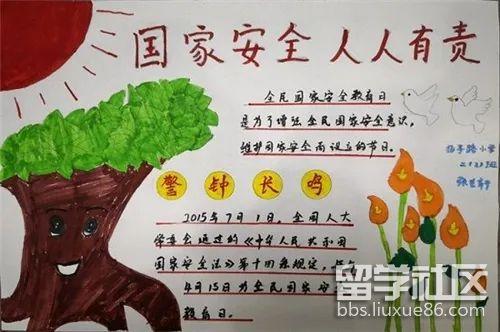 国家安全 人人有责
全民国家安全教育日
是为了增强全民国家安全意识，
维护国家安全而设立的节日。
扬子路小学
警钟长鸣
2015年7月1，全国人大
常委会通过的《中华人民共和国
国家安全法》第十四条规定，每年
4月15日为全民国家安全
教育日。
留学社区
bbs.liuxue86.com